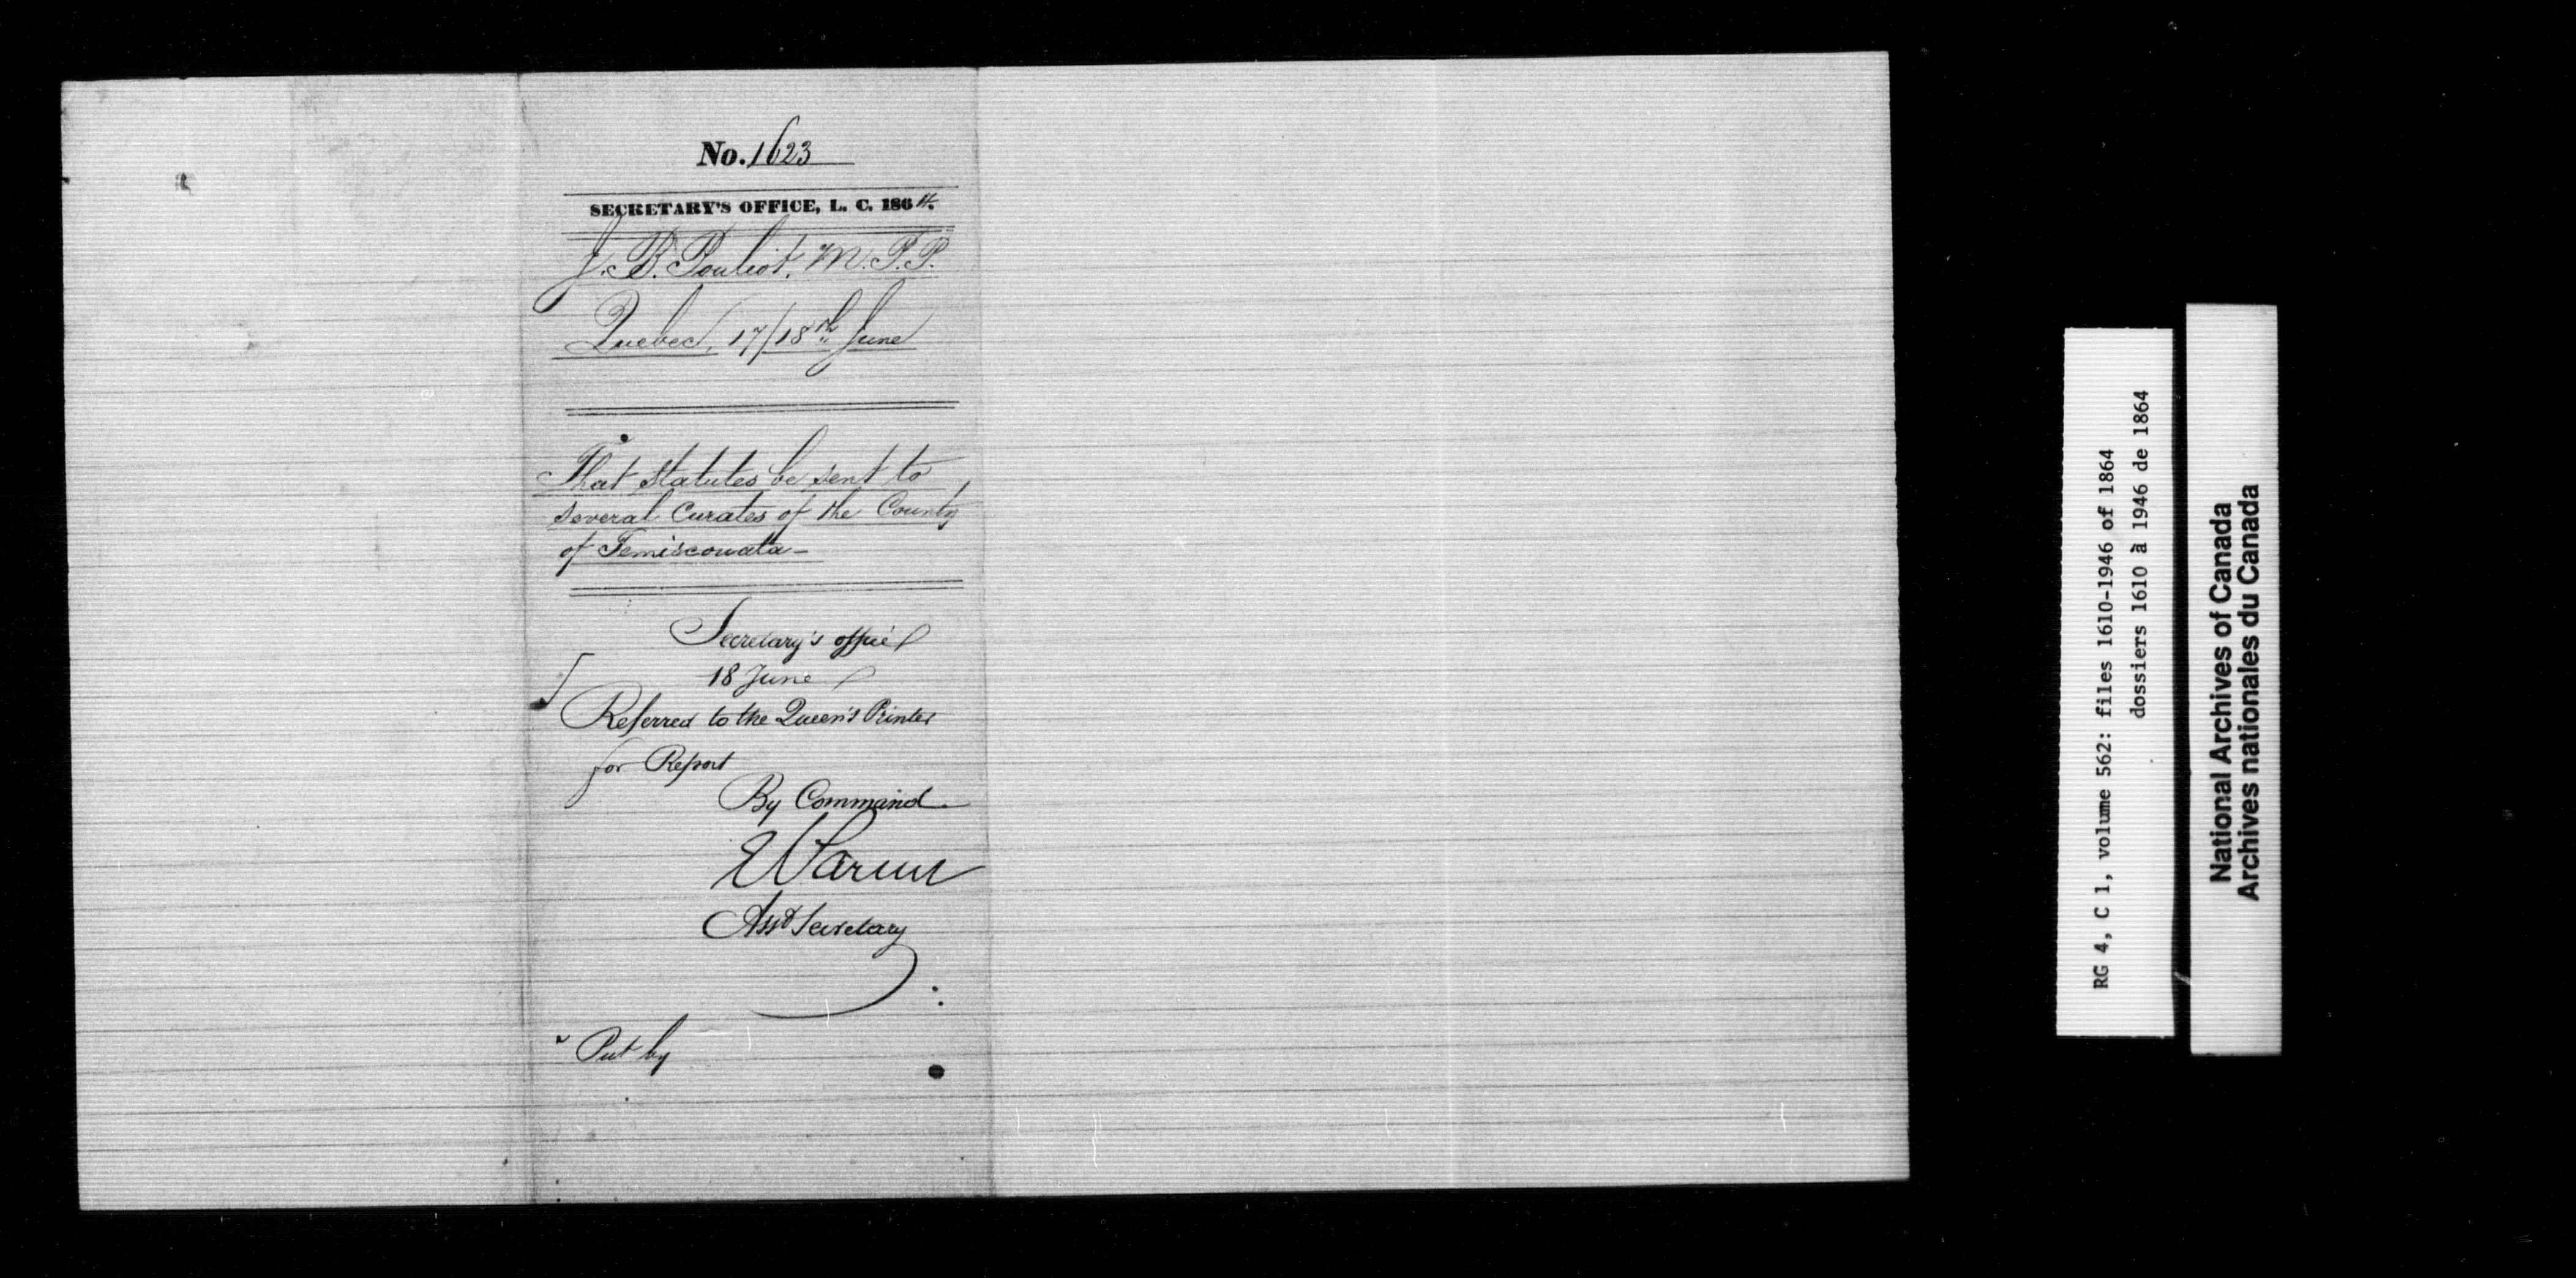 No. 1623
SECRETARY'S OFFICE, L. C. 1864.
J. B. Pouliot, M.P.P.
Quebec, 17/18th June
That Statutes be sent to
several Curates of the County
of Temiscouata -
Secretary's office
18 June
Referred to the Queen's Printer
for Report
By Command
Asst Secretary
Put by
RG 4, C 1, volume 562: files 1610-1946 of 1864
dossiers 1610 à 1946 de 1864
National Archives of Canada
Archives nationales du Canada